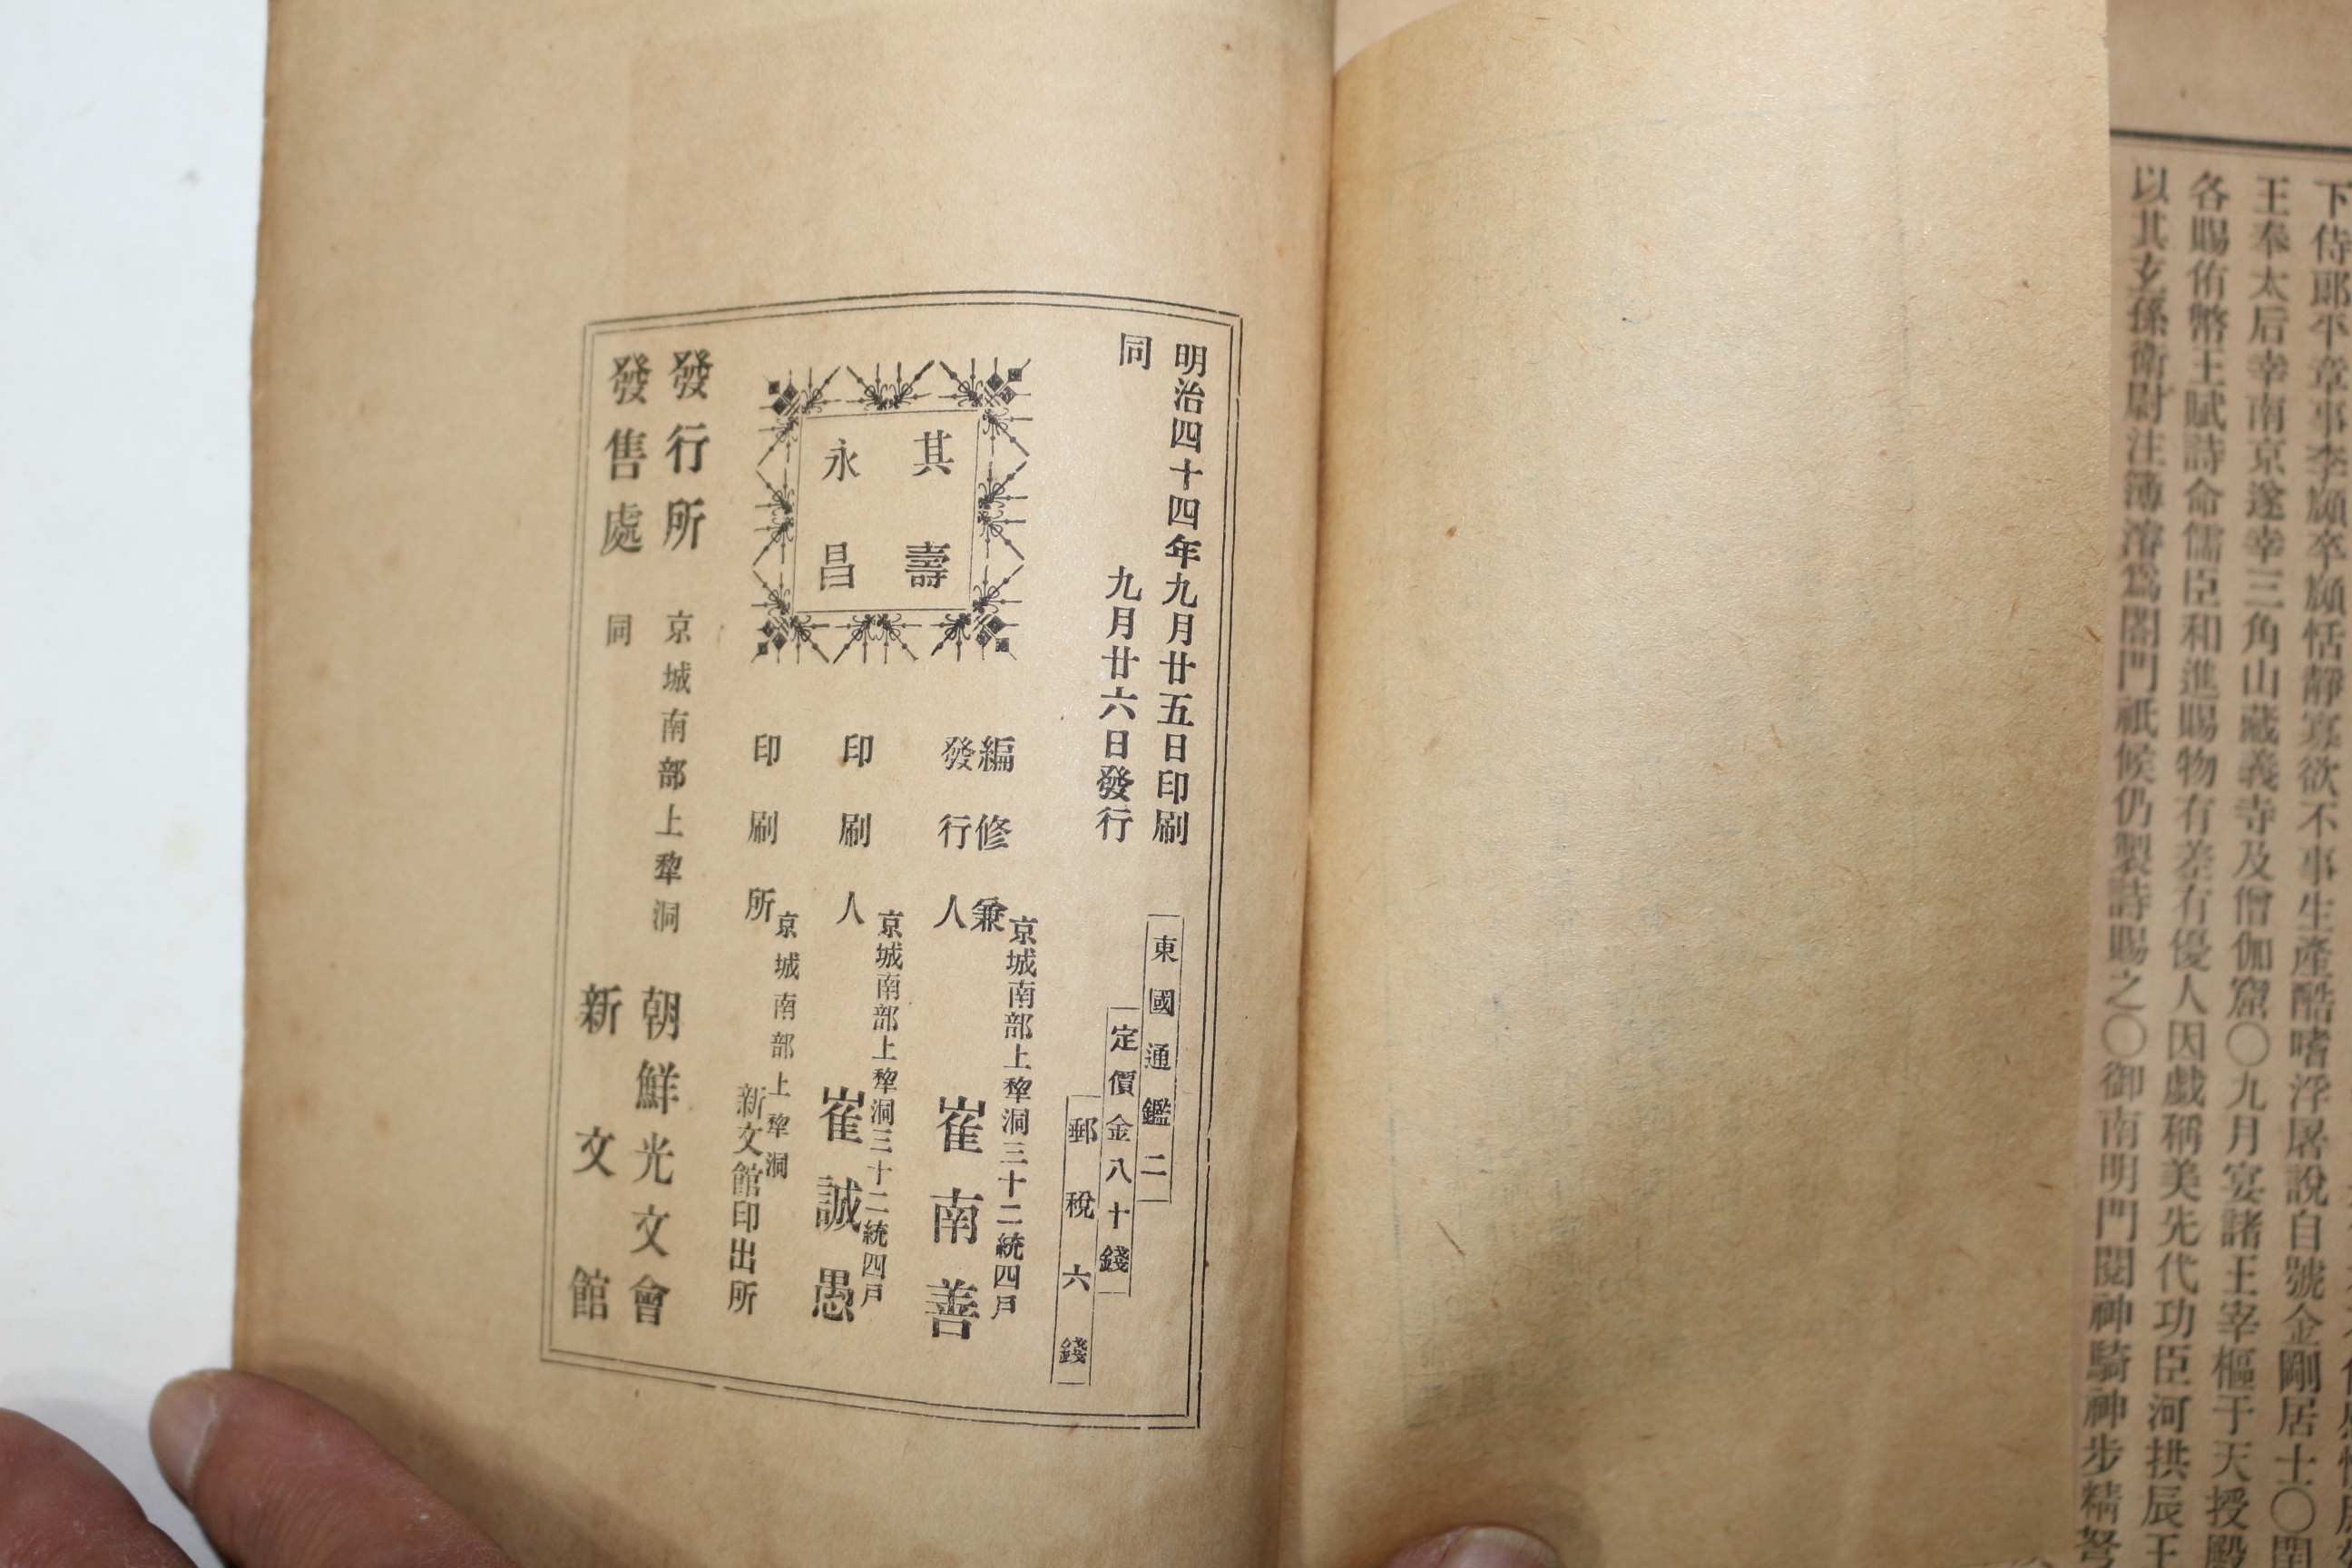 下侍郎平章事李頲卒頲恬靜寡欲不事生產酷嗜浮屠說自號金剛居士〇
王奉太后幸南京遂幸三角山藏義寺及僧伽窟〇九月宴諸王宰樞于天授殿
各賜侑幣王賦詩命儒臣和進賜物有差有優人因戲稱美先代功臣河拱辰王
以其玄孫衛尉注簿濬爲閤門祗候仍製詩賜之〇御南明門閱神騎神步精弩
明治四十四年九月廿五日印刷
同 九月廿六日發行
東國通鑑二
定價金八十錢
郵稅六錢
其壽
永昌
編修兼
發行人
京城南部上犂洞三十二統四戶
崔南善
印刷人
京城南部上犂洞三十二統四戶
崔誠愚
印刷所
京城南部上犂洞
新文館印出所
發行所 京城南部上犂洞 朝鮮光文會
發售處 同 新文館